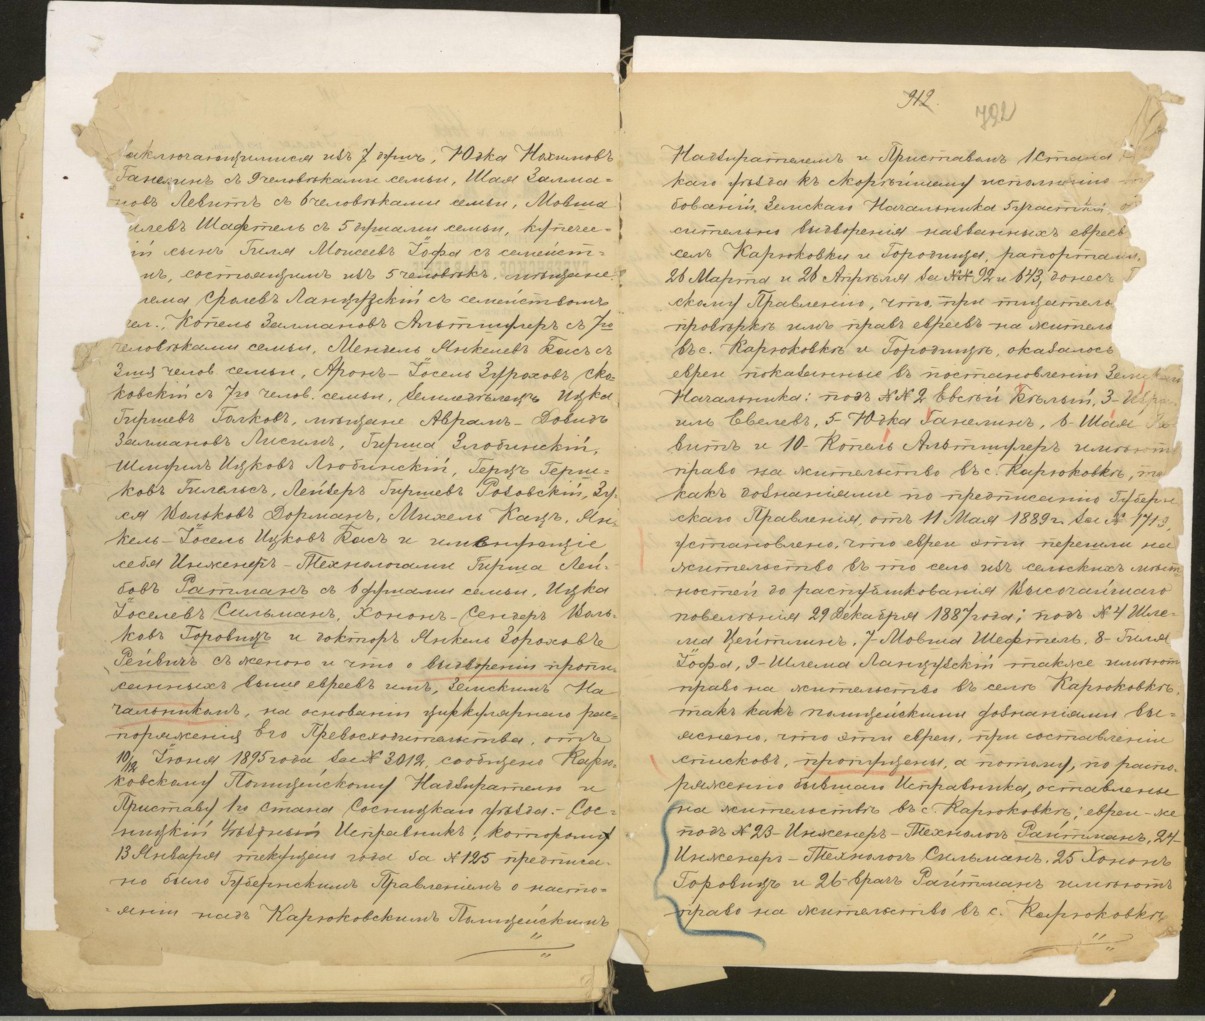 заключающимися изъ 7 душъ, Юдка Нохимовъ
Ганелинъ съ 9 человѣками семьи, Шая Залма-
новъ Левитъ съ 6 человѣками семьи, Мовша
Шафтель съ 5 душами семьи, купече-
сынъ Гиля Моисеевъ Іофа съ семейст-
состоящимъ изъ 5 человѣкъ, мѣщане
Сролевъ Ланцузскій съ семействомъ
Копель Залмановъ Альтшулеръ съ 7ю
человѣками семьи, Мендель Янкелевъ Басъ съ
3мя челов семьи, Аронъ-Іосель Зуроховъ
ковскій съ 7ю челов. семьи, земледѣлецъ Ицка
Гиршевъ Голковъ, мѣщане Аврамъ-Довидъ
Залмановъ Лисинъ, Гирша Злобинскій,
Шмуилъ Ицковъ Любинскій, Герцъ Герш-
ковъ Гилельсъ, Лейзеръ Гиршевъ Розовскій, Зу-
ся Вольковъ Дорманъ, Михель Кацъ, Ян-
кель-Іосель Ицковъ Басъ и именующіе
себя Инженеръ-Технологами Гирша Лей-
бовъ Ратманъ съ 6 душами семьи, Ицка
Іоселевъ Сильманъ, Хононъ-Сендеръ Воль-
ковъ Горовицъ и докторъ Янкель Зороховъ
Рейвичъ съ женою и что о выдвореніи пропи-
санныхъ выше евреевъ имъ, Земскимъ На
чальникомъ, на основаніи циркулярнаго рас-
поряженія Его Превосходительства, отъ
10/12 Іюня 1895 года за № 3012, сообщено Карю-
ковскому Полицейскому Надзирателю и
Приставу 1го стана Сосницкаго уѣзда.- Сос-
ницкій Уѣздный Исправникъ, которому
13 Января текущаго года за № 125 предписа-
но было Губернскимъ Правленіемъ о насто-
яніи надъ Карюковскимъ Полицейскимъ
912
792
Надзирателемъ и Приставомъ 1 стана
каго уѣзда къ скорѣйшему исполненію
бованій Земскаго Начальника 5 участка,
сительно выдворенія названныхъ евреевъ
селъ Карюковки и Городища, рапортами,
26 Марта и 26 Апрѣля за №№ 92 и 643, донесъ
скому Правленію, что при тщатель
провѣркѣ имъ правъ евреевъ на житель
въ с. Карюковкѣ и Городищѣ, оказалось
евреи показанные въ постановленіи Земскаго
Начальника: подъ №№ 2 Евсей Бѣлый, 3-
иль Евелевъ, 5 Юдка Ганелинъ, 6- Шая Ле
витъ и 10- Копель Альтшулеръ имѣютъ
право на жительство въ с. Карюковкѣ, та
какъ дознаніями по предписанію Губерн
скаго Правленія, отъ 11 Мая 1889 г. за № 1713,
установлено, что евреи эти перешли на
жительство въ то село изъ сельскихъ мѣст
ностей до распубликованія Высочайшаго
повелѣнія 29 Декабря 1887 года; подъ № 4 Шле-
ма Цейтлинъ, 7- Мовша Шефтель, 8- Гиля
Іофа, 9- Шлема Ланцузскій также имѣютъ
право на жительство въ селѣ Карюковкѣ,
такъ какъ полицейскими дознаніями вы-
яснено, что эти евреи, при составленіи
списковъ, пропущены, а потому, по распо-
ряженію бывшаго Исправника, оставлены
на жительствѣ въ с. Карюковкѣ; евреи-же
подъ № 23- Инженеръ-Технологъ Ратманъ, 24-
Инженеръ-Технологъ Сильманъ, 25 Хононъ
Горовицъ и 26- врачъ Райтманъ имѣютъ
право на жительство въ с. Карюковкѣ